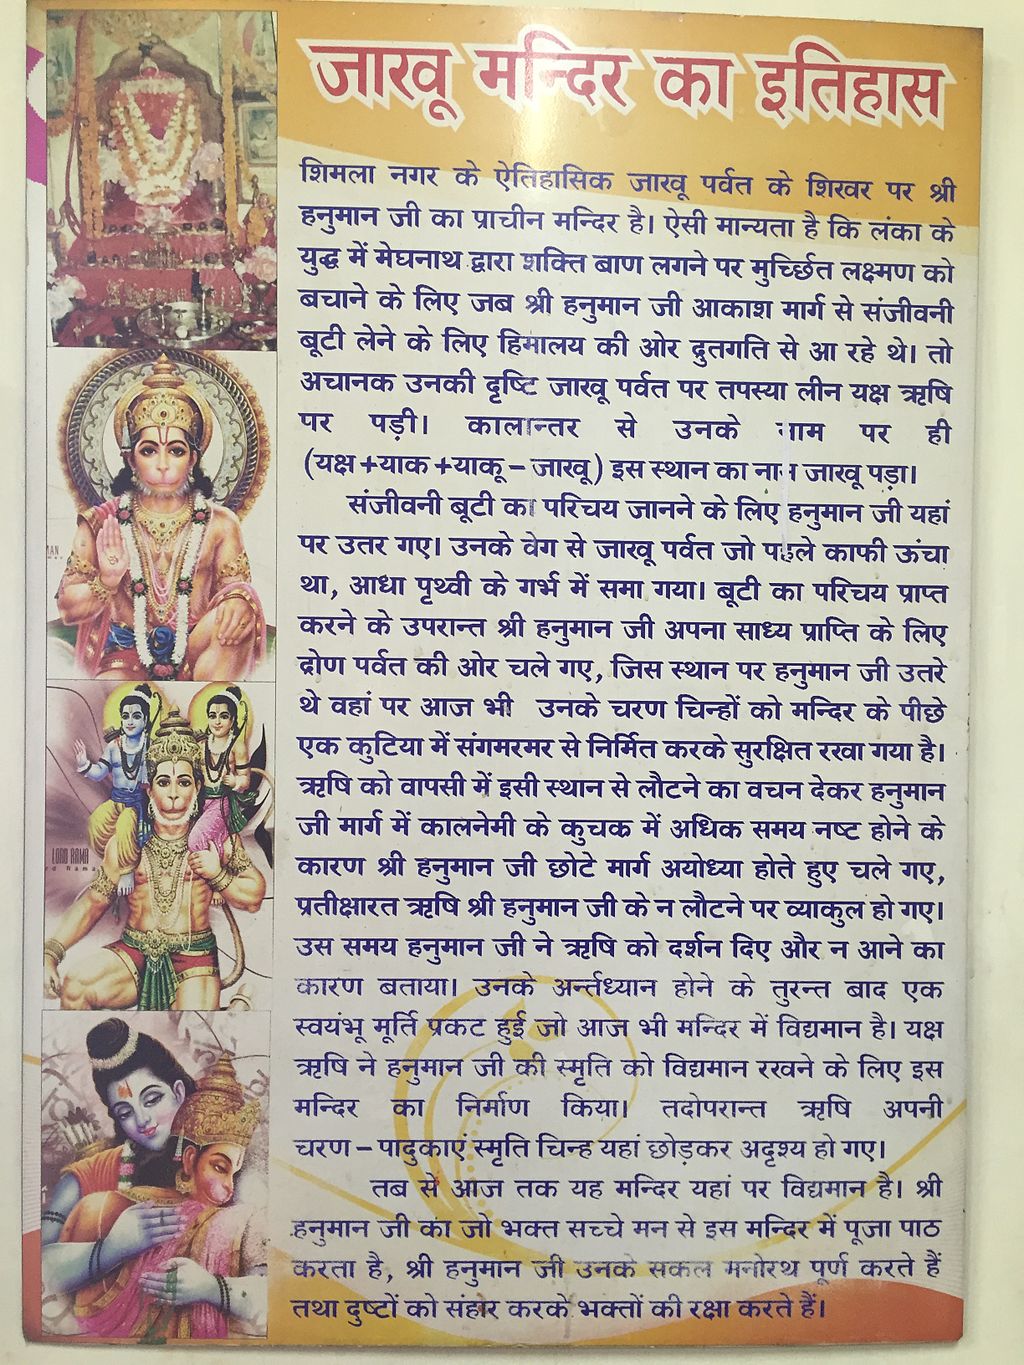 जाखू मन्दिर का इतिहास
शिमला नगर के ऐतिहासिक जाखू पर्वत के शिखर पर श्री
हनुमान जी का प्राचीन मन्दिर है। ऐसी मान्यता है कि लंका के
युद्ध में मेघनाथ द्वारा शक्ति बाण लगने पर मुर्च्छित लक्ष्मण को
बचाने के लिए जब श्री हनुमान जी आकाश मार्ग से संजीवनी
बूटी लेने के लिए हिमालय की ओर द्रुतगति से आ रहे थे। तो
अचानक उनकी दृष्टि जाखू पर्वत पर तपस्या लीन यक्ष ऋषि
पर पड़ी। कालान्तर से उनके नाम पर ही
(यक्ष+याक+याकू–जाखू) इस स्थान का नाम जाखू पड़ा।
संजीवनी बूटी का परिचय जानने के लिए हनुमान जी यहां
पर उतर गए। उनके वेग से जाखू पर्वत जो पहले काफी ऊंचा
था, आधा पृथ्वी के गर्भ में समा गया। बूटी का परिचय प्राप्त
करने के उपरान्त श्री हनुमान जी अपना साध्य प्राप्ति के लिए
द्रोण पर्वत की ओर चले गए, जिस स्थान पर हनुमान जी उतरे
थे वहां पर आज भी उनके चरण चिन्हों को मन्दिर के पीछे
एक कुटिया में संगमरमर से निर्मित करके सुरक्षित रखा गया है।
ऋषि को वापसी में इसी स्थान से लौटने का वचन देकर हनुमान
जी मार्ग में कालनेमी के कुचक में अधिक समय नष्ट होने के
कारण श्री हनुमान जी छोटे मार्ग अयोध्या होते हुए चले गए,
प्रतीक्षारत ऋषि श्री हनुमान जी के न लौटने पर व्याकुल हो गए।
उस समय हनुमान जी ने ऋषि को दर्शन दिए और न आने का
कारण बताया। उनके अर्न्तध्यान होने के तुरन्त बाद एक
स्वयंभू मूर्ति प्रकट हुई जो आज भी मन्दिर में विद्यमान है। यक्ष
ऋषि ने हनुमान जी की स्मृति को विद्यमान रखने के लिए इस
मन्दिर का निर्माण किया। तदोपरान्त ऋषि अपनी
चरण–पादुकाएं स्मृति चिन्ह यहां छोड़कर अदृश्य हो गए।
तब से आज तक यह मन्दिर यहां पर विद्यमान है। श्री
हनुमान जी का जो भक्त सच्चे मन से इस मन्दिर में पूजा पाठ
करता है, श्री हनुमान जी उनके सकल मनोरथ पूर्ण करते हैं
तथा दुष्टों को संहार करके भक्तों की रक्षा करते हैं।
LORD RAMA